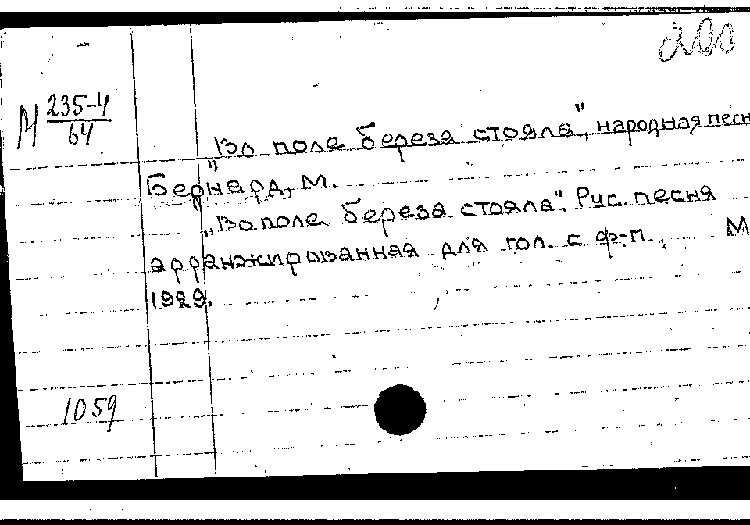 200
М 235-4
64
„Во поле береза стояла", народная песн
Бернард, М.
„Во поле береза стояла". Рус. песня
арранжированная для гол. с ф-п. М
1929.
1059